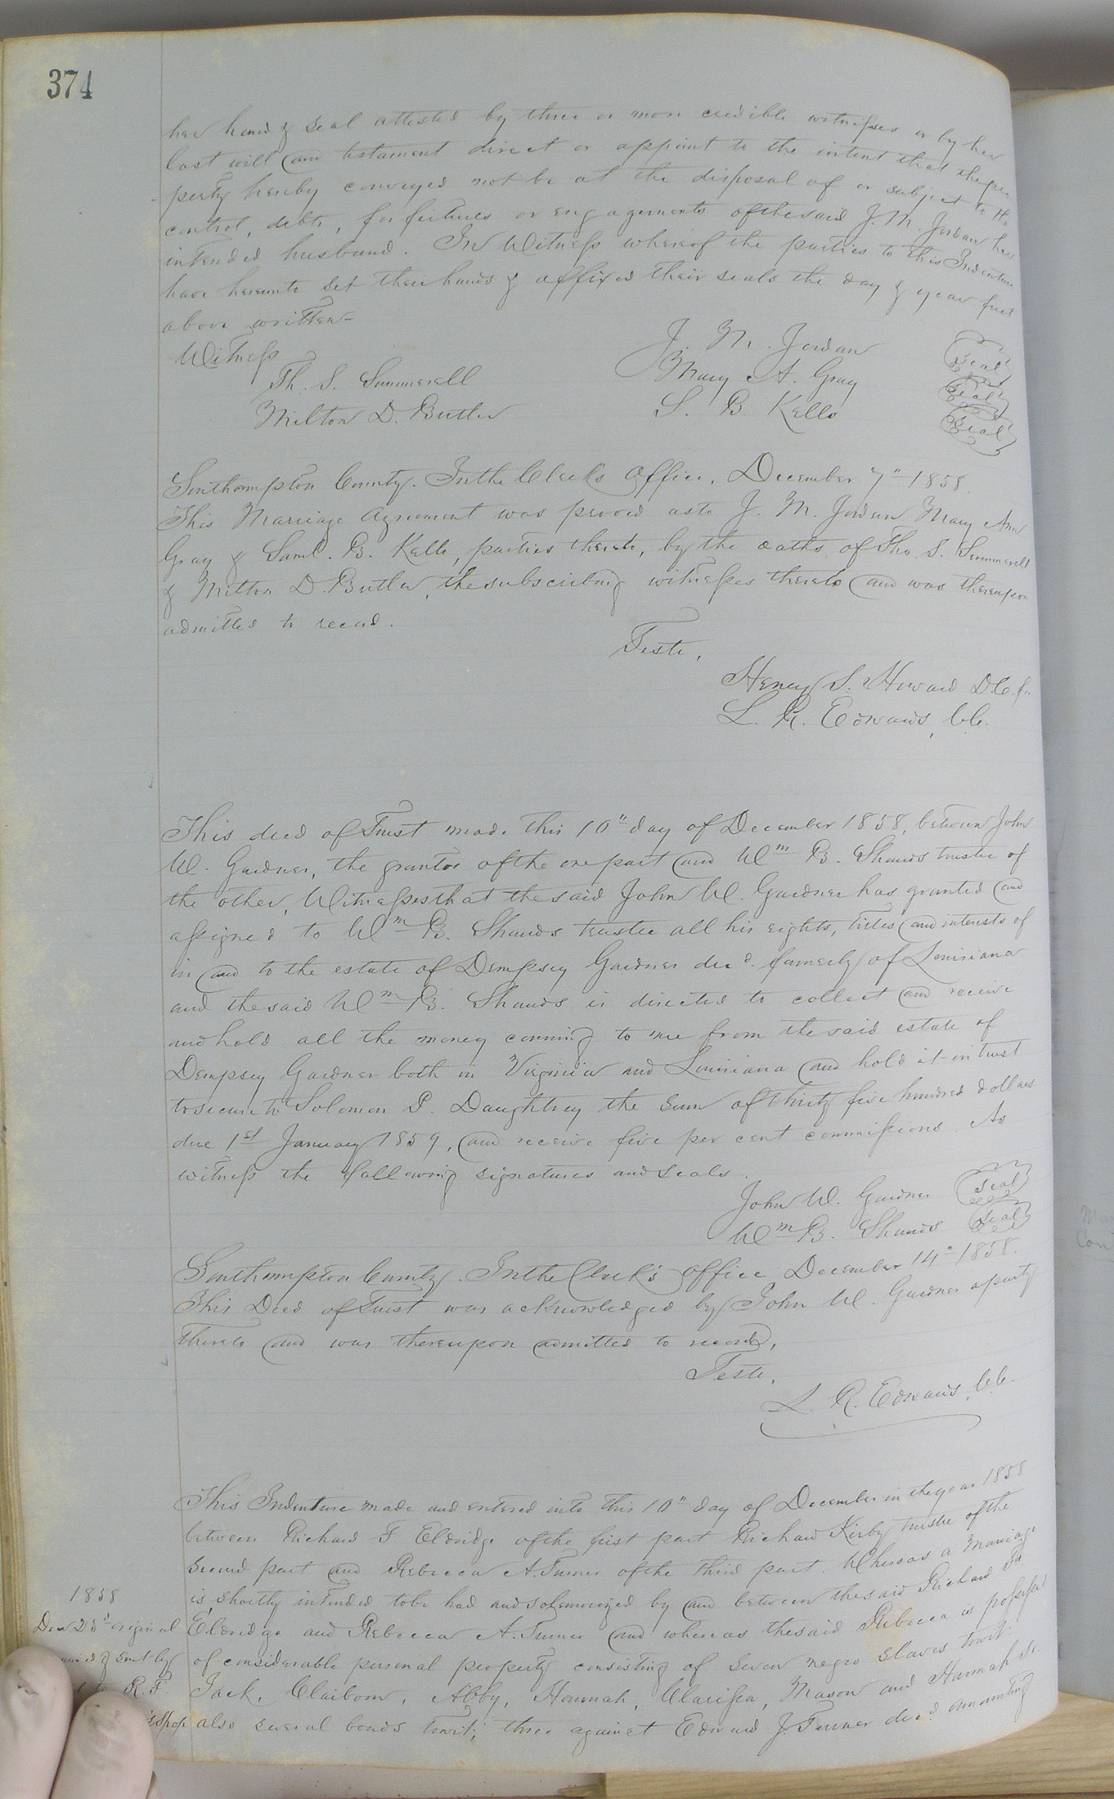 374
her hand & seal attested by three or more credible witnesses or by her
last will and testament direct or appoint to the intent that the pro
perty hereby conveyed not be at the disposal of or subject to the
control, debts, forfeitures or engagements of the said J. M. Jordan her
intended husband. In Witness whereof the parties to this Indenture
have hereunto set their hands & affixed their seals the day & year first
above written-
Witness J. M. Jordan Seal
Th. S. Summerell Mary A. Gray Seal
Milton D. Butler S. B. Kello Seal
Southampton County. In the Clerk's Office, December 7" 1858
This Marriage agreement was proved as to J. M. Jordan Mary Ann
Gray & Saml. B. Kello, parties thereto, by the oaths of Tho. S. Summerell
& Milton D. Butler, the subscribing witnesses thereto and was thereupon
admitted to record.
Teste,
Henry S. Howard D.C. for
L. R. Edwards, C.C.
This deed of Trust made this 10" day of December 1858, between John
W. Gardner, the grantor of the one part and Wm B. Shands trustee of
the other, Witnesses that the said John W. Gardner has granted and
assigned to Wm B. Shands trustee all his rights, titles and interests of
in and to the estate of Dempsey Gardner decd. formerly of Louisiana
and the said Wm B. Shands is directed to collect and receive
and hold all the money comming to me from the said estate of
Dempsey Gardner both in Virginia and Louisiana and hold it in trust
to secure to Solomon P. Daughtrey the sum of thirty five hundred dollars
due 1st January 1859, and receive five per cent commissions. As
witness the following signatures and seals.
John W. Gardner Seal
Wm B. Shands Seal
Southampton County. In the Clerk's office December 14" 1858.
This Deed of Trust was acknowledged by John W. Gardner a party
thereto and was thereupon admitted to record,
Teste,
L. R. Edwards, C.C.
This Indenture made and entered into this 10" day of December in the year 1858
between Richard T Eldridge of the first part Richard Kirby trustee of the
second part and Rebecca A. Turner of the third part. Whereas a marriage
is shortly intended to be had and solemnized by and between the said Richard T.
Eldridge and Rebecca A. Turner and whereas the said Rebecca is possessed
of considerable personal property consisting of seven negro slaves towit:
Jack, Claiborn, Abby, Hannah, Clarissa, Mason and Hannah Sr.
also several bonds towit; three against Edward J. Turner decd. amounting
1858
Dec 23d original
& sent by
R. T.